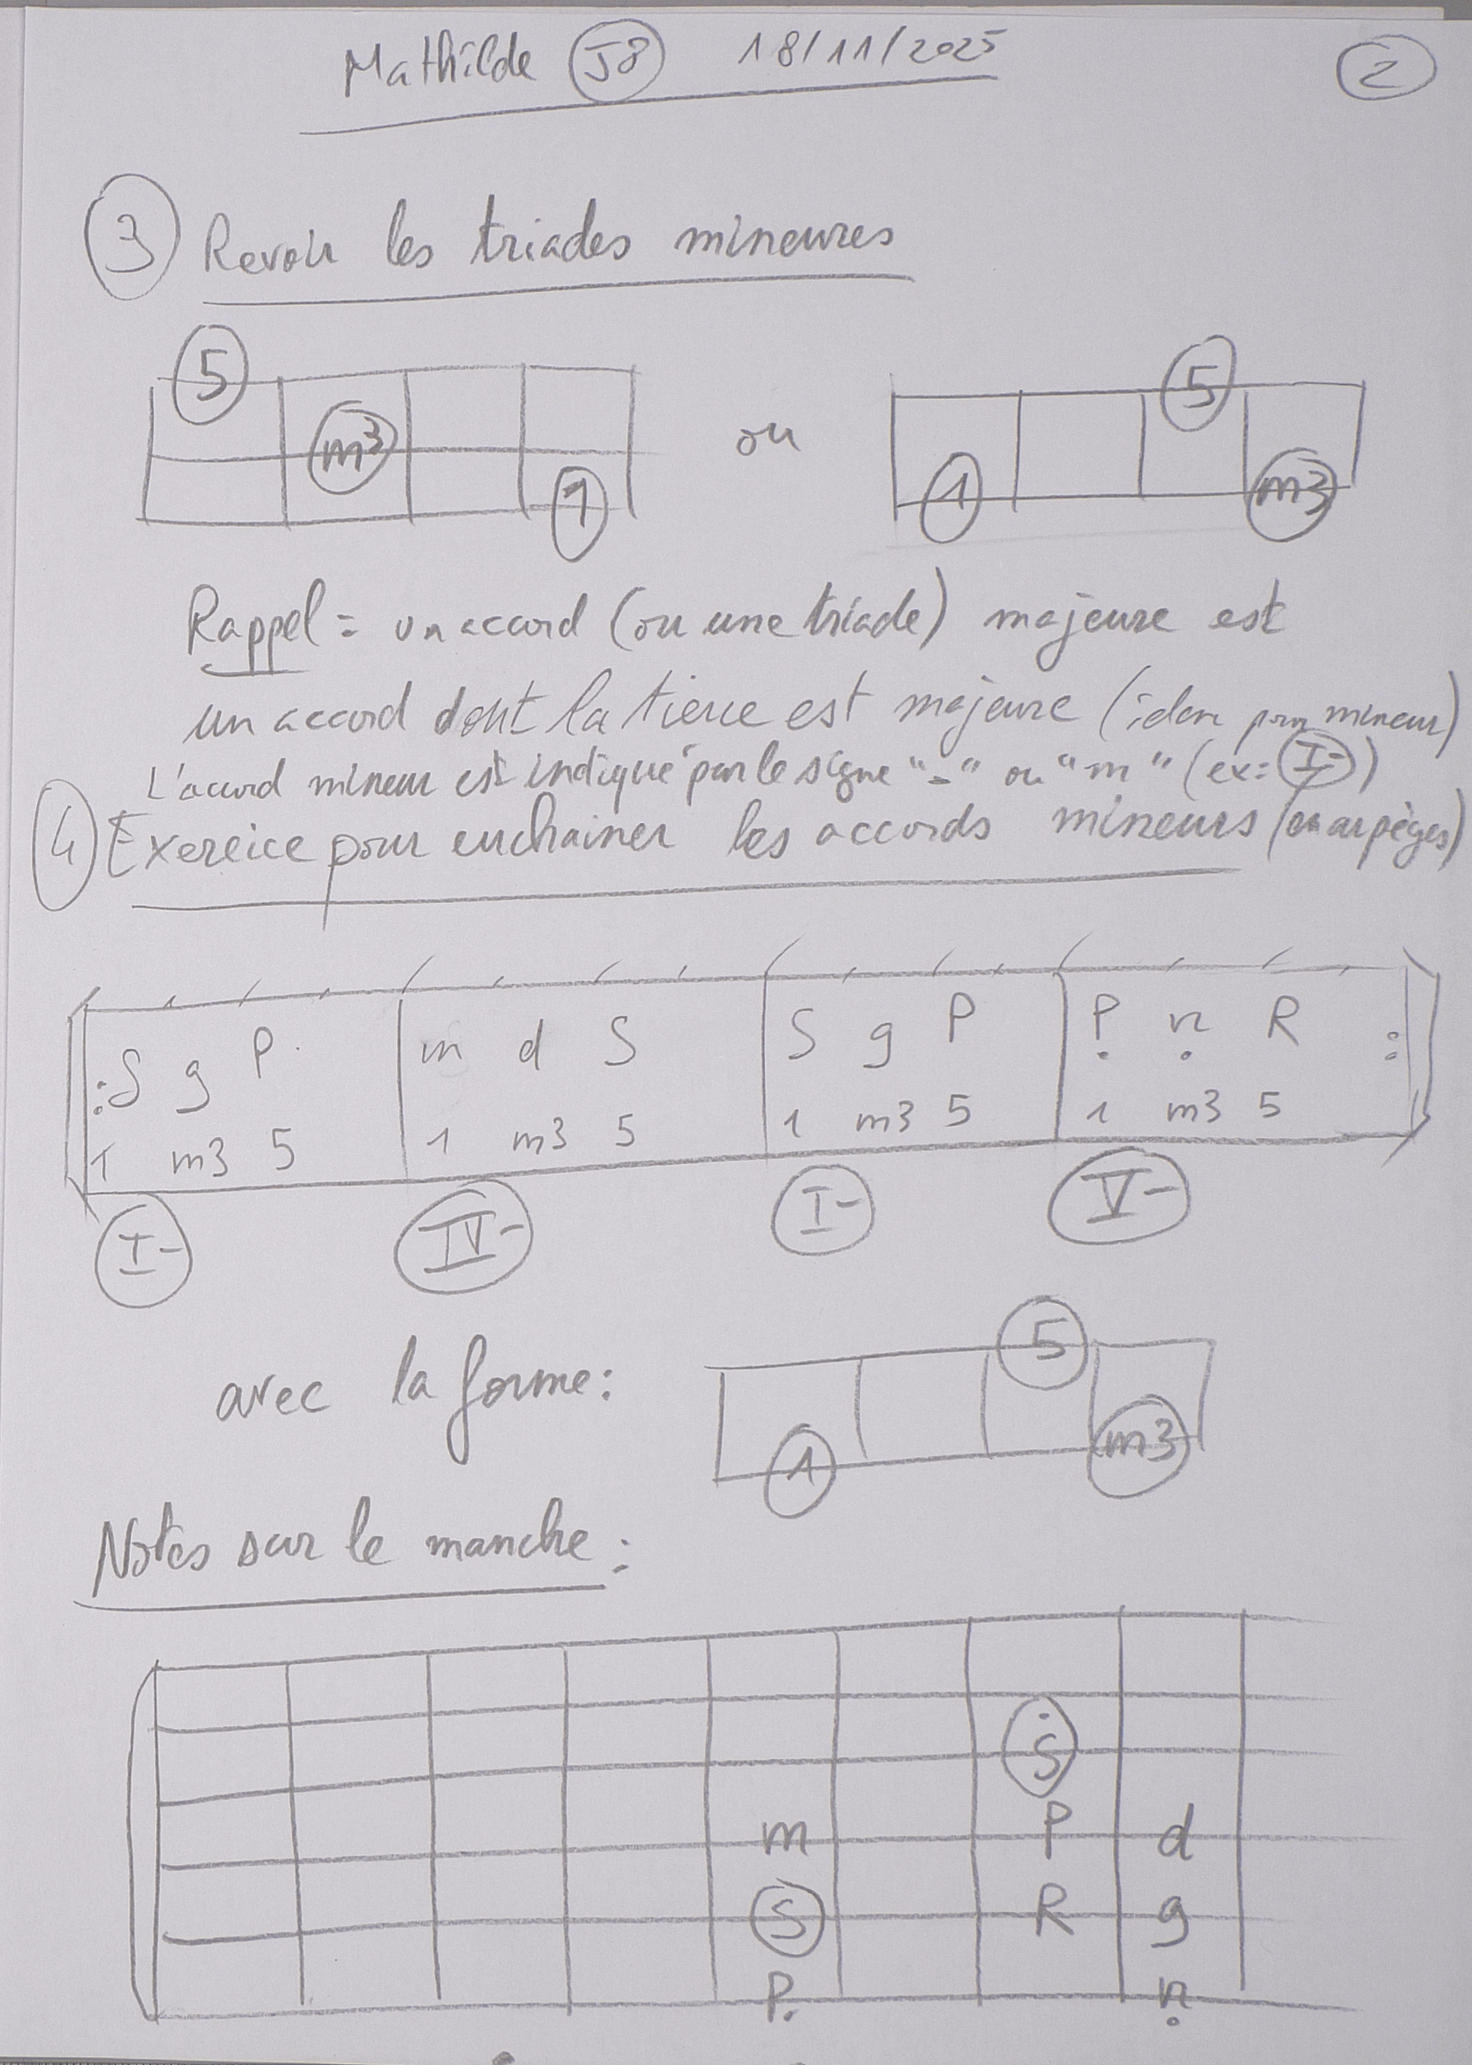 Mathilde J8 18/11/2025 2
3 Revoir les triades mineures
5 m3 1 ou 1 5 m3
Rappel = un accord (ou une triade) majeure est
un accord dont la tierce est majeure (idem pour mineur)
L'accord mineur est indiqué par le signe "-" ou "m" (ex: I-)
4 Exercice pour enchainer les accords mineurs (en arpèges)
: S g P m d S S g P Ṣ n R :
1 m3 5 1 m3 5 1 m3 5 1 m3 5
I- IV- I- V-
avec la forme: 1 5 m3
Notes sur le manche :
Ṡ
m P d
S R g
P. ṇ